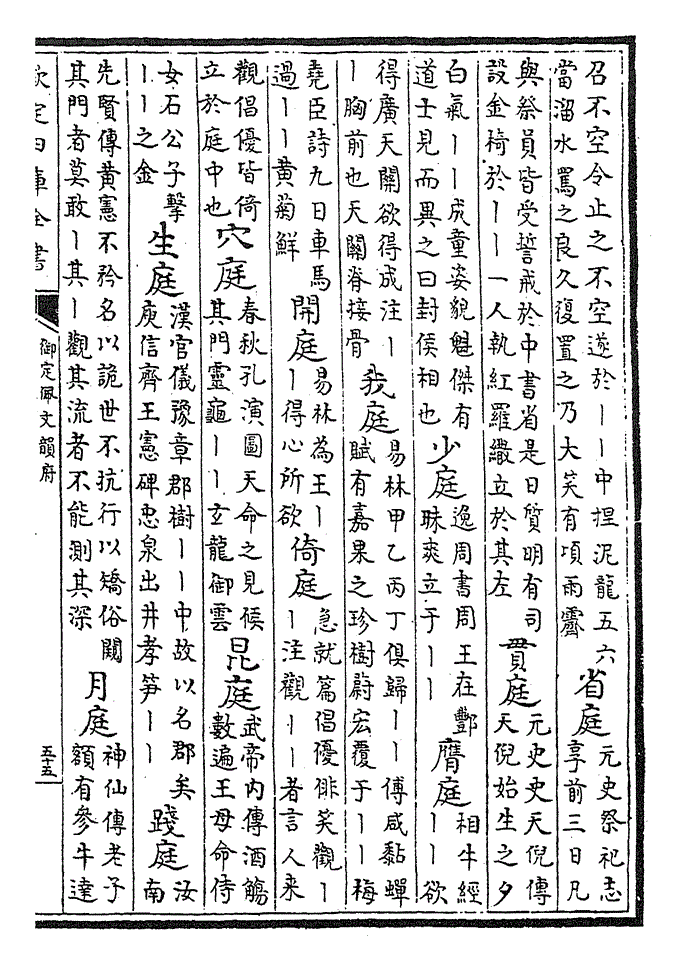 召不空令止之不空遂於丨丨中捏泥龍五六
當溜水罵之良久復置之乃大笑有項雨霽
省庭
元史祭祀志
享前三日凡
與祭員皆受誓戒於中書省是日質明有司
設金椅於丨丨一人執紅羅繖立於其左
貫庭
元史史天倪傳
天倪始生之夕
白氣丨丨成童姿貌魁傑有
道士見而異之曰封侯相也
少庭
逸周書周王在酆
昧爽立于丨丨
膺庭
相牛經
丨丨欲
得廣天關欲得成注丨
丨胸前也天關脊接骨
我庭
易林甲乙丙丁俱歸丨丨傅咸黏蟬
賦有嘉果之珍樹蔚宏覆于丨丨梅
堯臣詩九日車馬
過丨丨黃菊鮮
開庭
易林為王丨
丨得心所欲
倚庭
急就篇倡優俳笑觀丨
丨注觀丨丨者言人来
觀倡優皆倚
立於庭中也
穴庭
春秋孔演圖天命之見候
其門靈龜丨丨玄龍御雲
昆庭
武帝内傳酒觴
數遍王母命侍
女石公子擊
丨丨之金
生庭
漢官儀豫章郡樹丨丨中故以名郡矣
庾信齊王憲碑忠泉出井孝笋丨丨
踐庭
汝
南
先賢傳黃憲不矜名以詭世不抗行以矯俗闚
其門者莫敢丨其丨觀其流者不能測其深
月庭
神仙傳老子
額有參牛達
欽定四庫全書
御定佩文韻府
五十五